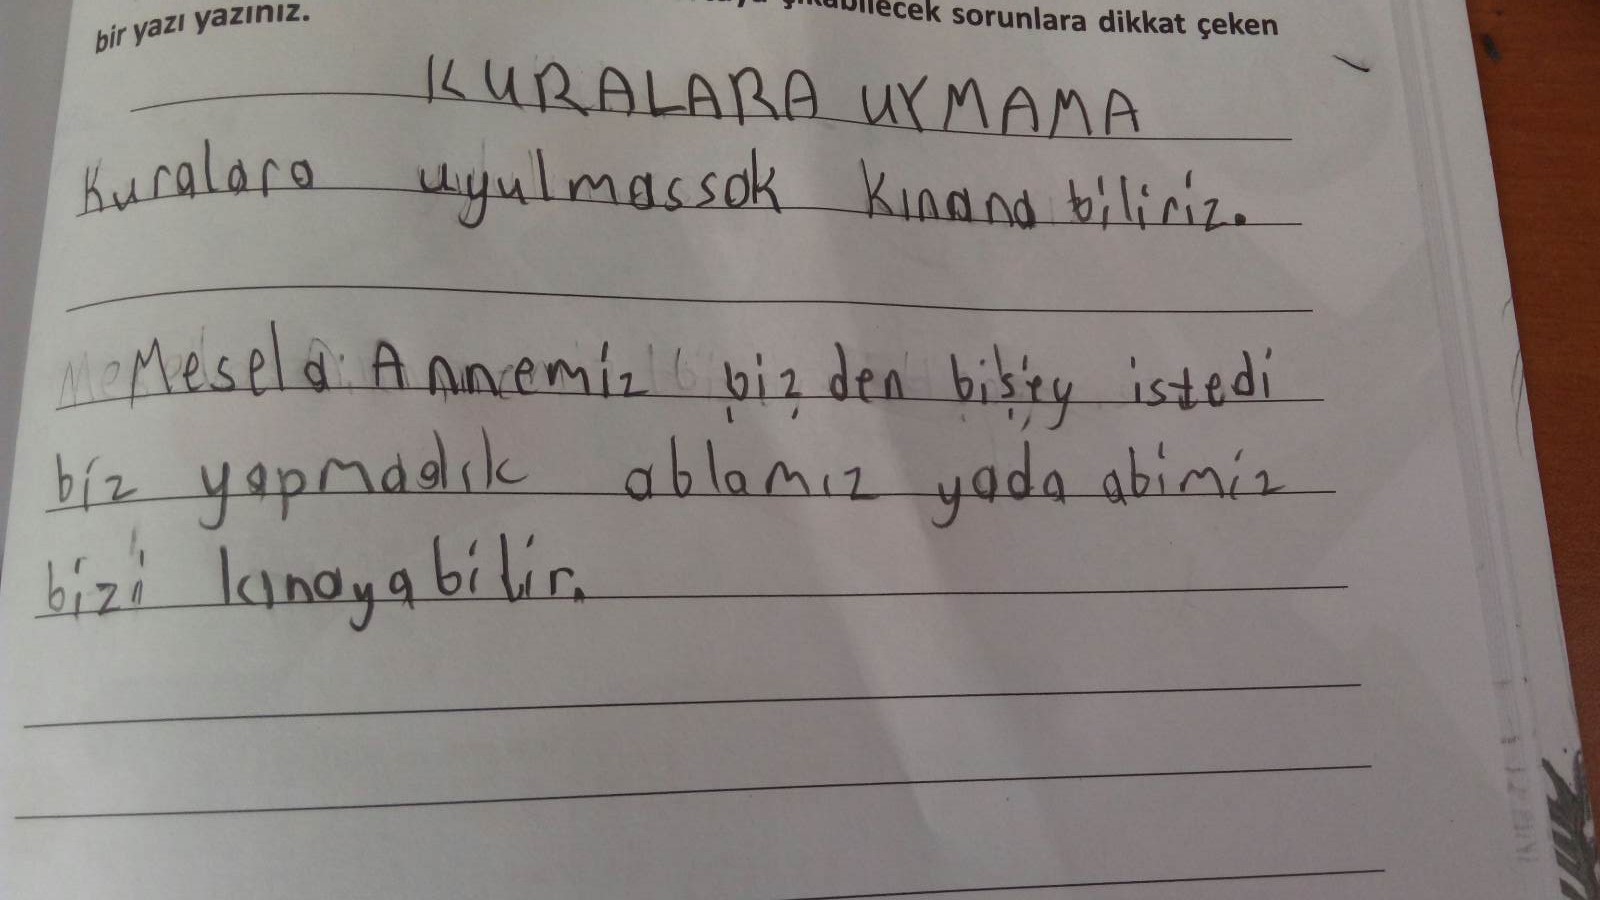 çıkabilecek sorunlara dikkat çeken
bir yazı yazınız.
KURALARA UYMAMA
Kuralara uyulmassak kınana biliriz.
Mesela Annemiz biz den bişey istedi
biz yapmadık ablamız yada abimiz
bizi kınaya bilir.